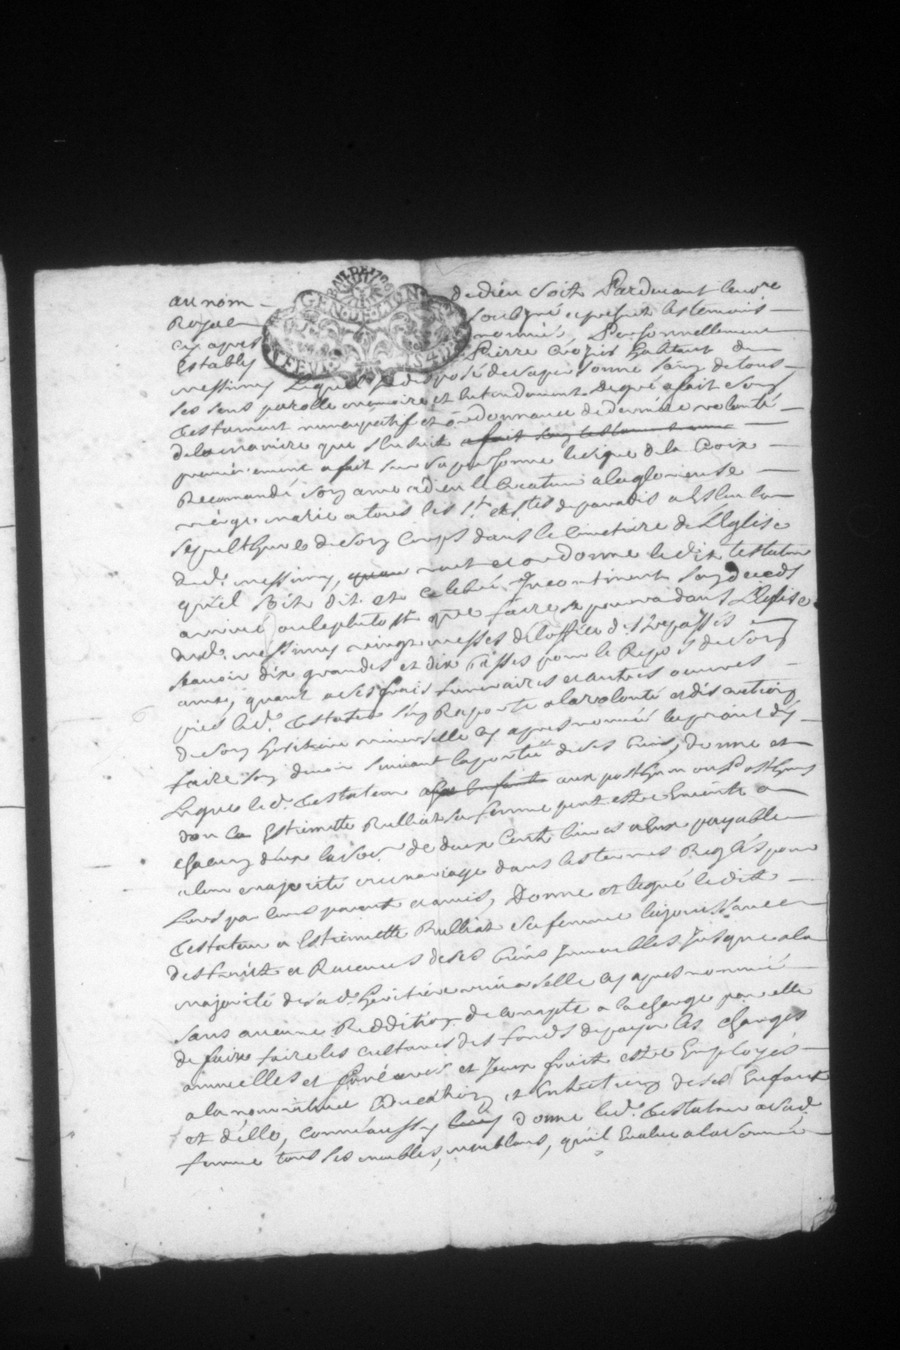 au nom de dieu soit Pardevant le no.re
Royal soubsigné et present les temoins
cy apres nommés Personnellement
Estably Pierre Crozier habitant de
messimy Lequel disposé de sa personne sain de tous
ses sens parolle memoire et entendement de gré a fait son
testament nuncupatif et ordonnance de derniere volonté
de la maniere que s'ensuit a fait son testament comme
premierement a fait sur sa personne le signe de la Croix
Recomandé son ame a dieu le Createur a la glorieuse
vierge marie a tous les S.ts et S.tes de paradis a Eslu la
sepulthure de son Corps dans le Cimetiere de L'Eglise
dud. messimy, veut et ordonne ledit testateur
qu'il soit dit et celebré Incontinent son decedz
arrivé ou le plutost que faire se pourra dans L'Eglise
dud. messimy vingt messes de L'office des Trepassés
scavoir dix grandes et dix basses pour le Repos de son
ame, quant a ses frais funeraires et autres oeuvres
pies led. testateur s'en Raporte a la volonté et discretion
de son heritiere universelle cy apres nommée la priant d'y
faire son devoir suivant la portée de ses biens, donne et
legue led. testateur a ses Enfants aux posthume ou Posthumes
don La Estiennette Rulliat sa femme peut estre Enceinte a
chacun d'eux la somme de deux Cents livres a Eux payable
a leur majorité ou mariage dans les termes Reglés pour
Lors par leurs parents et amis, Donne et legue ledit
testateur a Estiennette Rulliat sa femme la jouissance
des fruits et Revenus de ses biens Immeubles Jusque a la
majorité de sad. heritiere universelle cy apres nommée
sans aucune Reddition de compte a la charge par elle
de faire faire les cultures des fonds de payer les charges
annuelles et et Iceux fruits estre Employes
a la nourriture Education et Entretien de ses Enfants
et d'elle, comme aussy donne led. testateur a sad.
femme tous ses meubles, meublans, qu'il Evalue a la somme